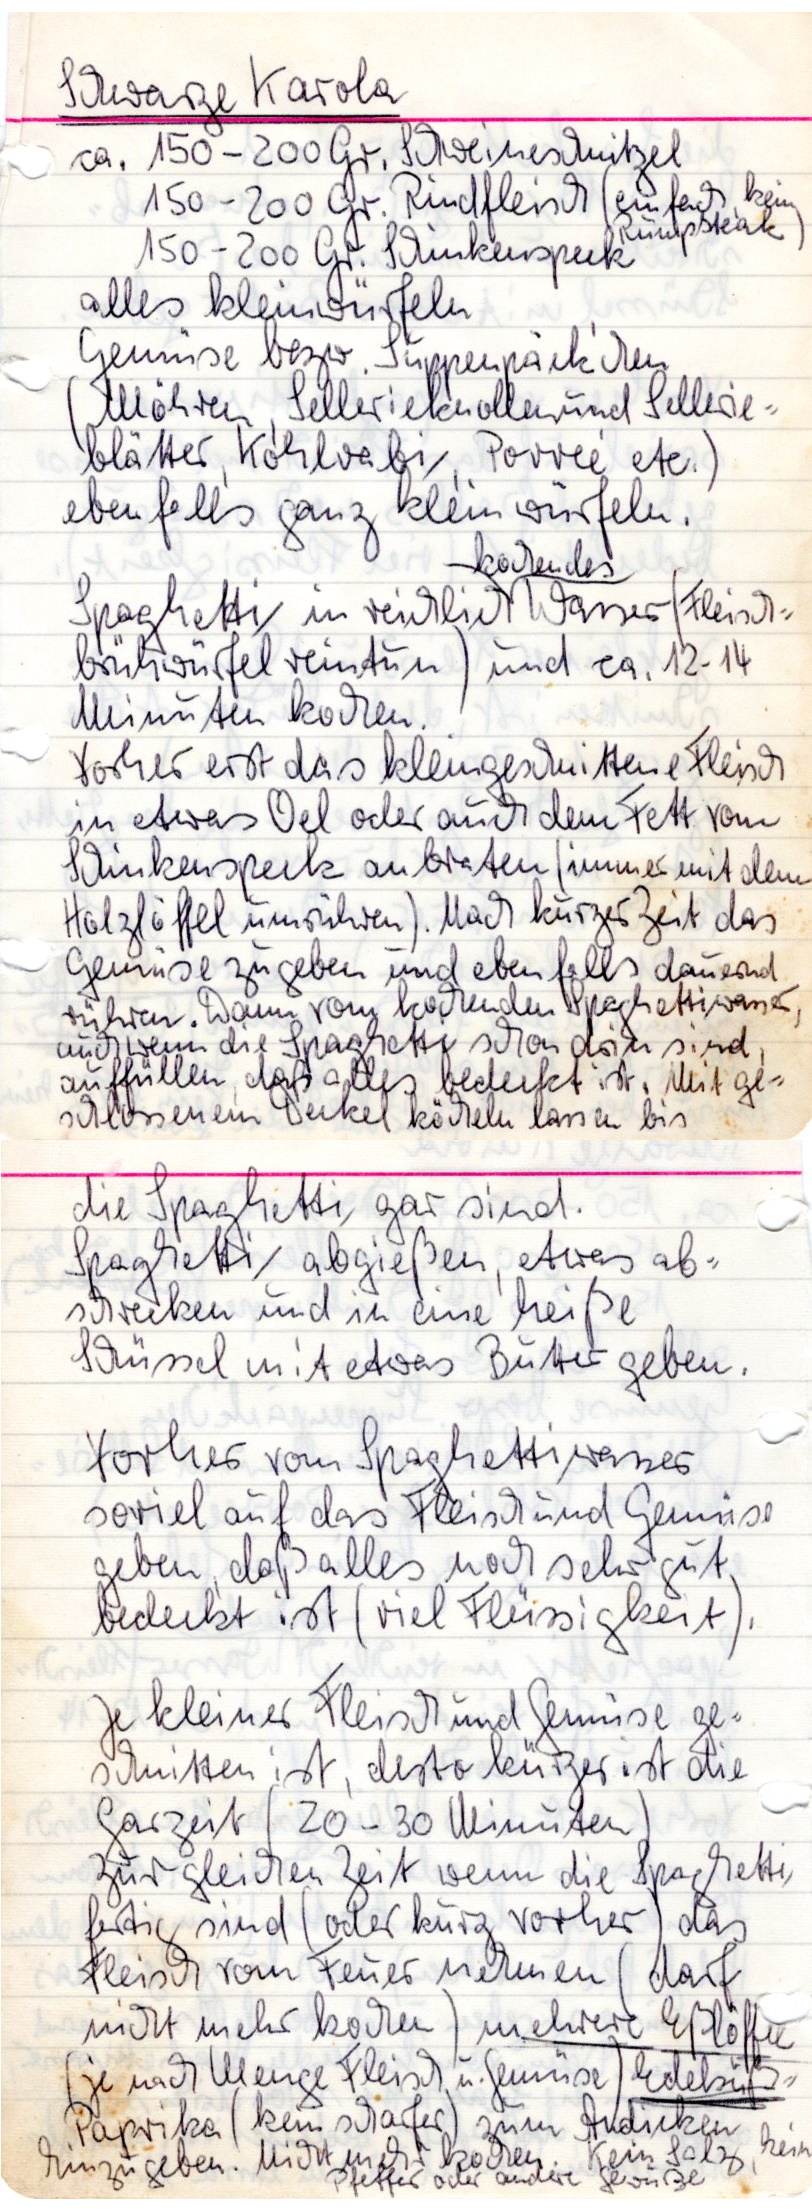 Schwarze Karola
ca. 150-200 Gr. Schweineschnitzel
150-200 Gr. Rindfleisch (einfach, kein
Rumpsteak)
150-200 Gr. Schinkenspeck
alles kleinwürfeln
Gemüse bezw. Suppenpäckchen
(Möhren, Sellerieknollen und Sellerie=
blätter, Kohlrabi, Porreé etc.)
ebenfalls ganz klein würfeln.
kochendes
Spaghetti in reichlich Wasser (Fleisch=
brühwürfel reintun) und ca. 12-14
Minuten kochen.
Vorher erst das kleingeschnittene Fleisch
in etwas Oel oder auch dem Fett vom
Schinkenspeck anbraten (immer mit dem
Holzlöffel umrühren). Nach kurzer Zeit das
Gemüse zugeben und ebenfalls dauernd
rühren. Dann vom kochenden Spaghettiwasser,
auch wenn die Spaghetti schon drin sind,
auffüllen, daß alles bedeckt ist. Mit ge=
schlossenem Deckel köcheln lassen bis
die Spaghetti gar sind.
Spaghetti abgießen, etwas ab=
schrecken und in eine heiße
Schüssel mit etwas Butter geben.
Vorher vom Spaghettiwasser
soviel auf das Fleisch und Gemüse
geben, daß alles noch sehr gut
bedeckt ist (viel Flüssigkeit).
Je kleiner Fleisch und Gemüse ge=
schnitten ist, desto kürzer ist die
Garzeit (20-30 Minuten)
Zur gleichen Zeit wenn die Spaghetti
fertig sind (oder kurz vorher) das
Fleisch vom Feuer nehmen (darf
nicht mehr kochen) mehrere Eßlöffel
(je nach Menge Fleisch u. Gemüse) Edelsüß=
Paprika (kein scharfer) zum Andicken
hinzugeben. Nicht mehr kochen. Kein Salz, kein
Pfeffer oder andere Gewürze